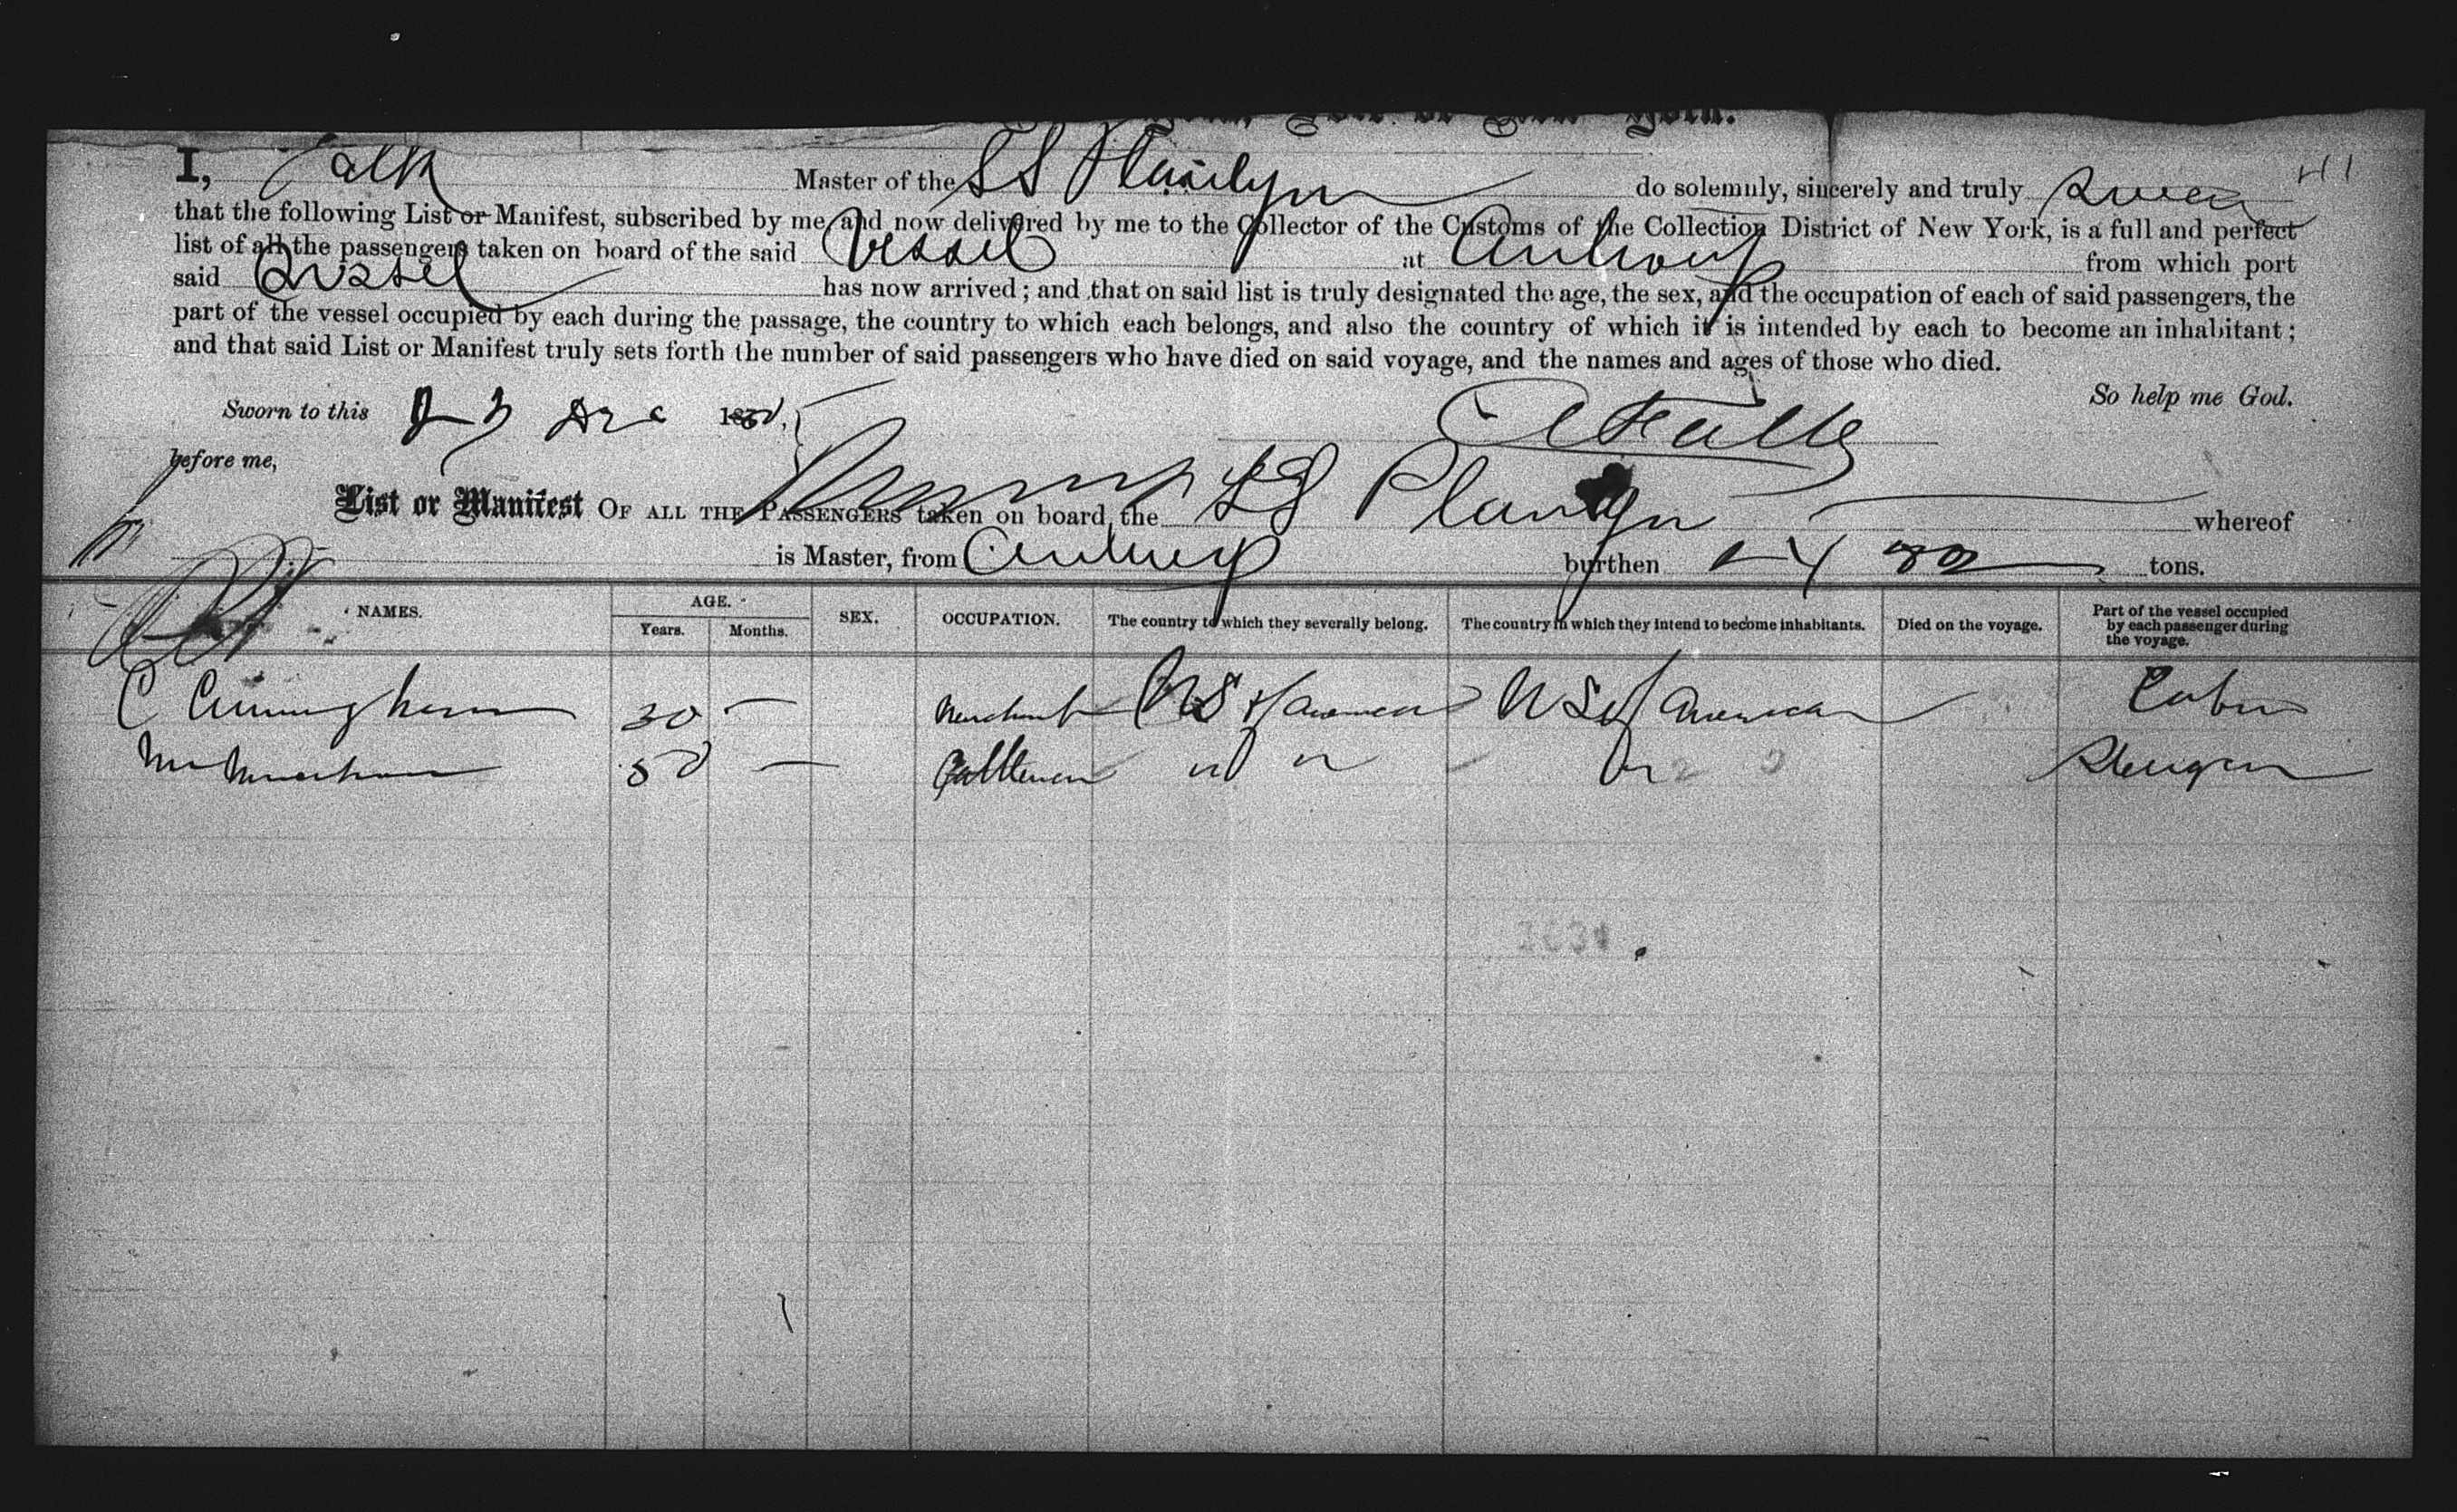 I, Falk Master of the SS Plantyn do solemnly, sincerely and truly swear 411
that the following List or Manifest, subscribed by me and now delivered by me to the Collector of the Customs of the Collection District of New York, is a full and perfect
list of all the passengers taken on board of the said Vessel at Antwerp from which port
said Vessel has now arrived; and that on said list is truly designated the age, the sex, and the occupation of each of said passengers, the
part of the vessel occupied by each during the passage, the country to which each belongs, and also the country of which it is intended by each to become an inhabitant;
and that said List or Manifest truly sets forth the number of said passengers who have died on said voyage, and the names and ages of those who died.
So help me God.
Sworn to this 23 Dec 188
Falk
before me,
List or Manifest OF ALL THE PASSENGERS taken on board the SS Plantyn whereof
is Master, from Antwerp burthen tons.
NAMES. AGE. Years. Months. SEX. OCCUPATION. The country to which they severally belong. The country in which they intend to become inhabitants. Died on the voyage. Part of the vessel occupied by each passenger during the voyage.
C Cunningham 30 — Merchant US of America US of America Cabin
50 — Cattleman " " " Steerage